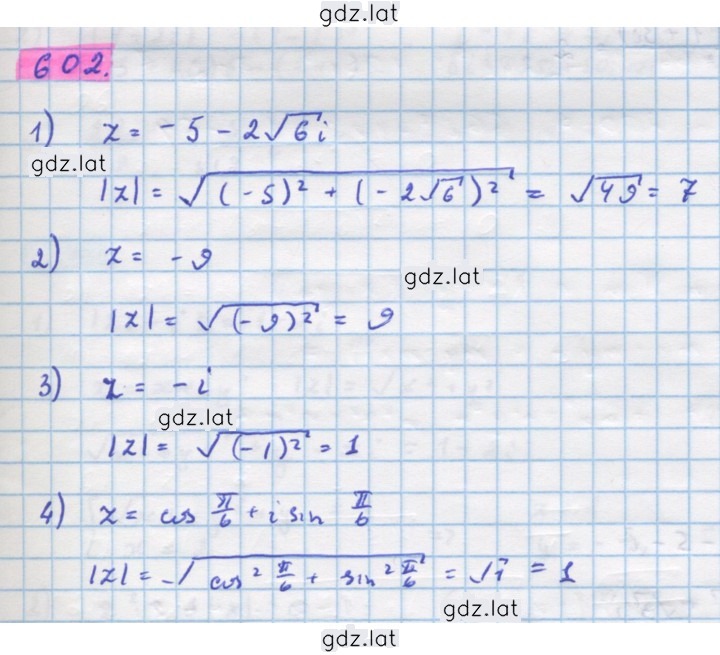 gdz.lat
602.
1) z = -5 - 2√6 i
gdz.lat
|z| = √((-5)² + (-2√6)²) = √49 = 7
2) z = -9
gdz.lat
|z| = √((-9)²) = 9
3) z = -i
gdz.lat
|z| = √((-1)²) = 1
4) z = cos π/6 + i sin π/6
|z| = √(cos² π/6 + sin² π/6) = √1 = 1
gdz.lat
gdz.lat